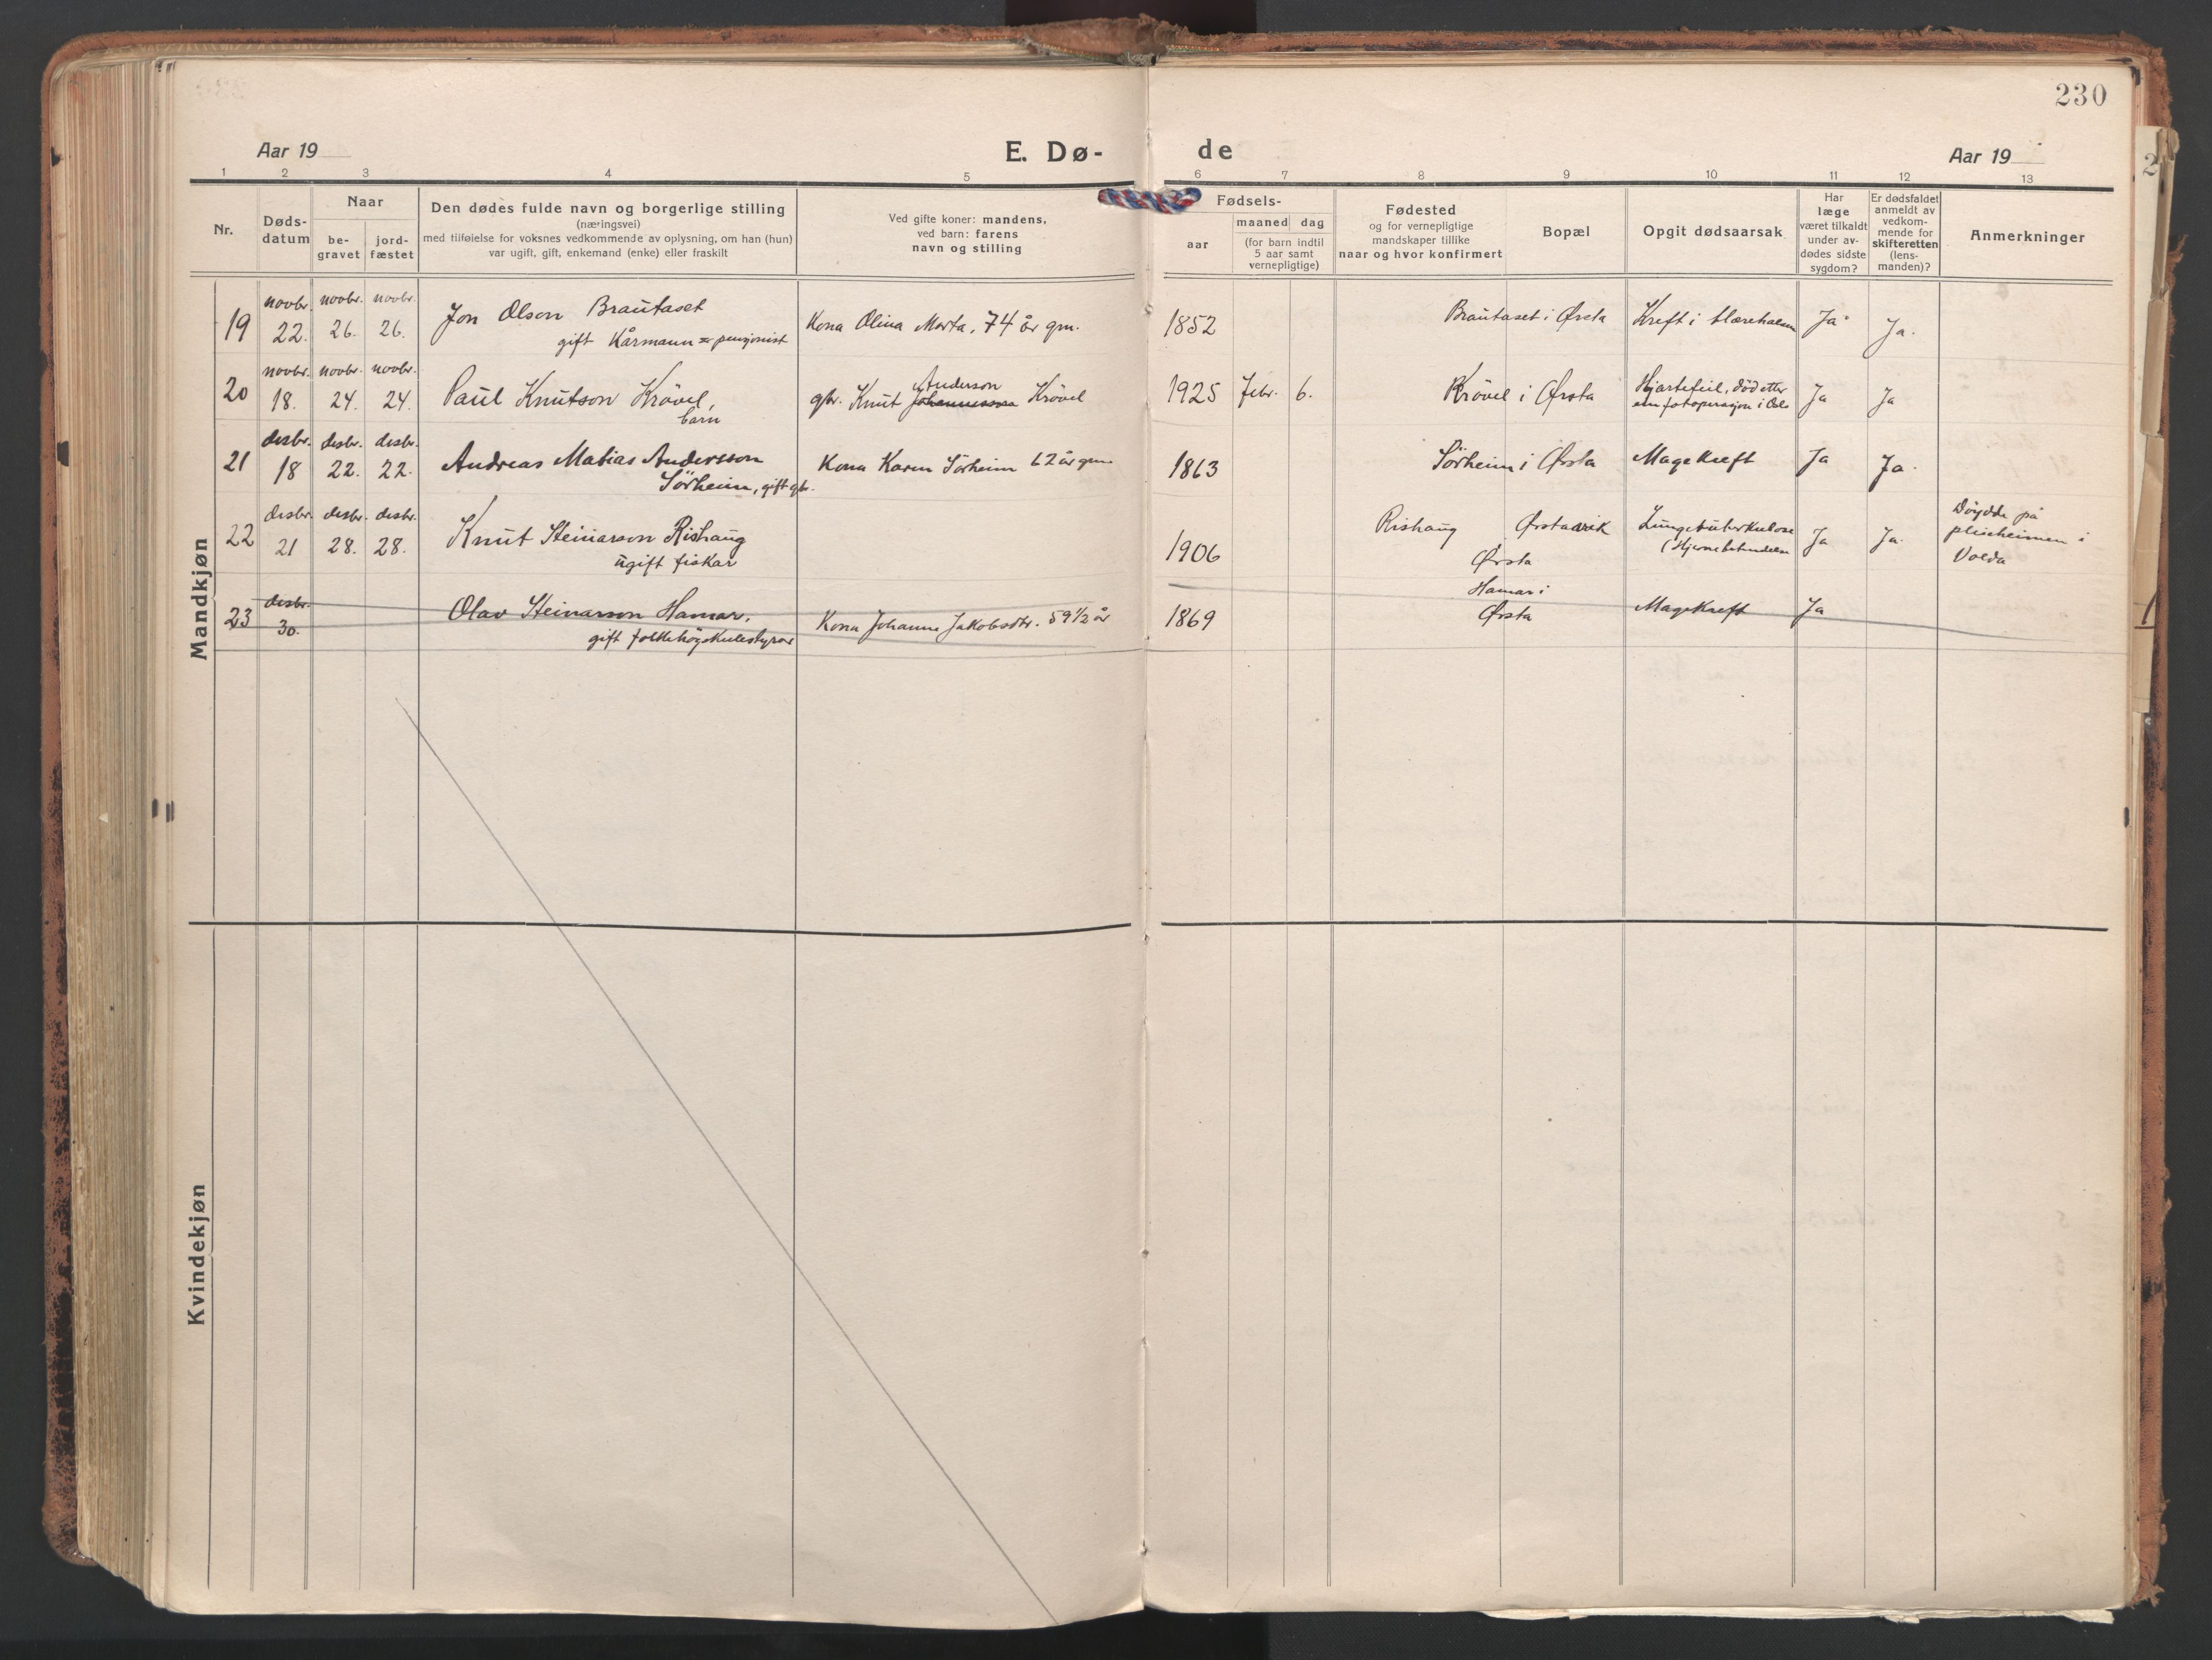 230
Aar 19
E. Dø-
de
Aar 19
1 2 3 4 5 6 7 8 9 10 11 12 13
Nr.
Døds-
datum
Naar
be-
gravet
jord-
fæstet
Den dødes fulde navn og borgerlige stilling
(næringsvei)
med tilføielse for voksnes vedkommende av oplysning, om han (hun)
var ugift, gift, enkemand (enke) eller fraskilt
Ved gifte koner: mandens,
ved barn: farens
navn og stilling
Fødsels-
aar
maaned dag
(for barn indtil
5 aar samt
vernepligtige)
Fødested
og for vernepligtige
mandskaper tillike
naar og hvor konfirmert
Bopæl
Opgit dødsaarsak
Har
læge
været tilkaldt
under av-
dødes sidste
sygdom?
Er dødsfaldet
anmeldt av
vedkom-
mende for
skifteretten
(lens-
manden)?
Anmerkninger
Mandkjøn
19
novbr.
22.
novbr.
26.
novbr.
26.
Jon Olson Brautaset
gift Kårmann = pensjonist
Kona Olina Marta, 74 år gm.
1852
Brautaset i Ørsta
Kreft i blærehalsen
Ja
Ja.
20
novbr.
18.
novbr.
24.
novbr.
24.
Paul Knutson Krøvel,
barn
Anderson
gbr. Knut Johannesson Krøvel
1925 febr. 6.
Krøvel i Ørsta
Hjartefeil, død etter
ein fotoperasjon i Oslo
Ja
Ja
21
desbr.
18
desbr.
22.
desbr.
22.
Andreas Matias Andersson
Sørheim, gift gbr.
Kona Karen Sørheim 62 år gm.
1863
Sørheim i Ørsta
Magekreft
Ja
Ja.
22
desbr.
21
desbr.
28.
desbr.
28.
Knut Steinarson Rishaug
ugift fiskar
1906
Rishaug
Ørstavik
Ørsta
Lungetuberkulose
(Hjernebetendelse
Ja
Ja.
Døydde på
pleieheimen i
Volda
23
desbr.
30.
Olav Steinarson Hamar,
gift folkehøgskulestyrar
Kona Johanne Jakobsdtr. 59 1/2 år
1869
Hamar i
Ørsta
Magekreft
Ja
Kvindekjøn